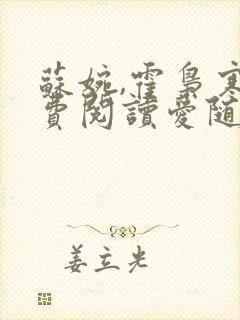 蘇婉,霍梟寒
費閱讀愛隨
姜立光